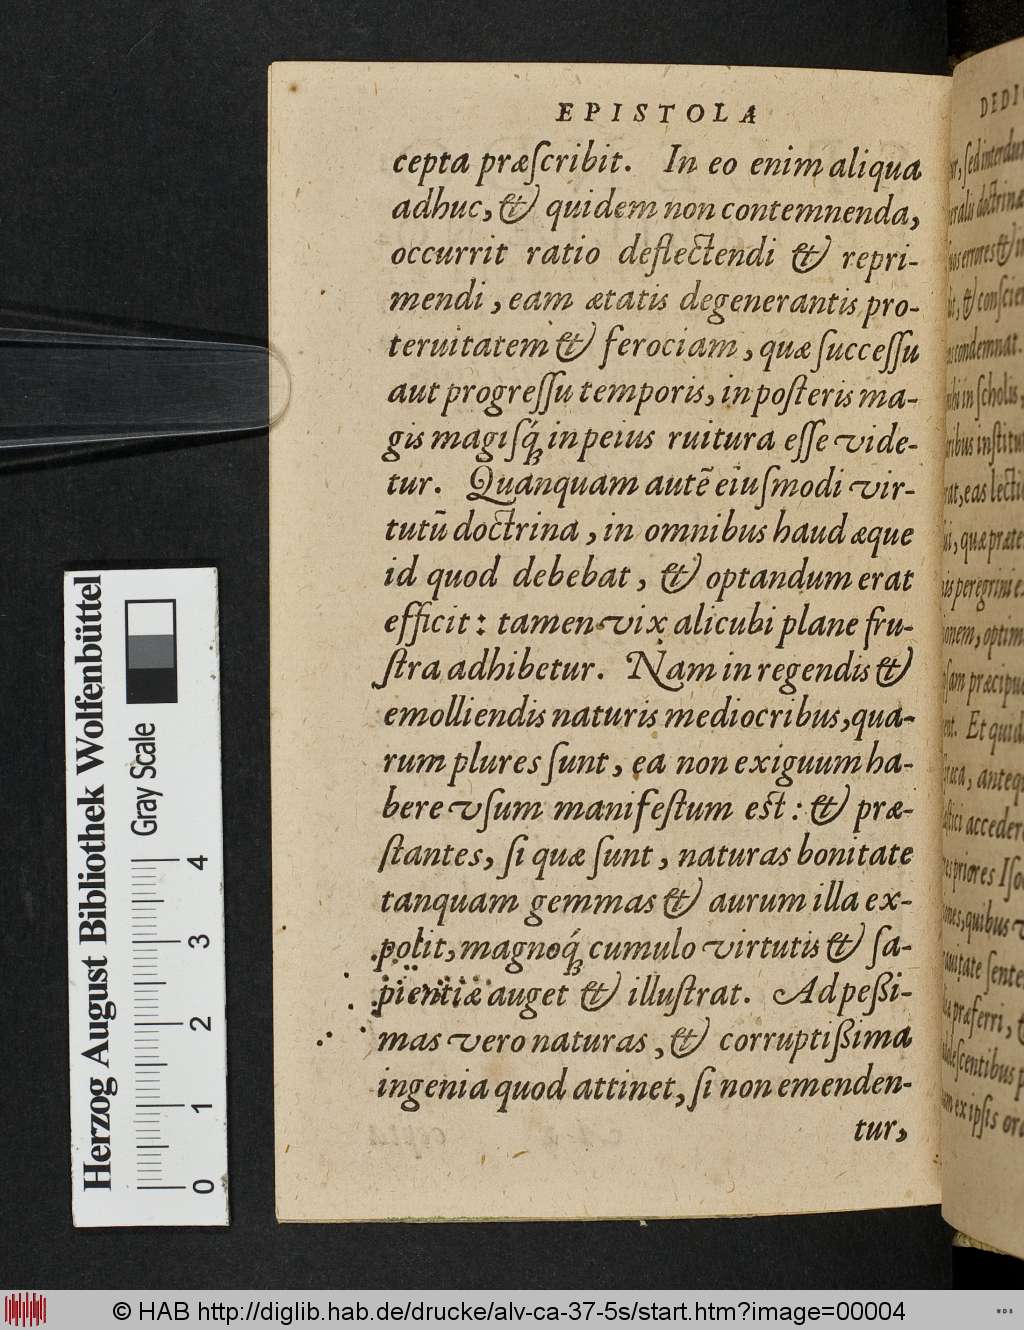 EPISTOLA
cepta præſcribit. In eo enim aliqua
adhuc, & quidem non contemnenda,
occurrit ratio deflectendi & repri-
mendi, eam ætatis degenerantis pro-
teruitatem & ferociam, quæ ſucceſſu
aut progreſſu temporis, in poſteris ma-
gis magiſq́; in peius ruitura eſſe vide-
tur. Quanquam autẽ eiuſmodi vir-
tutũ doctrina, in omnibus haud æque
id quod debebat, & optandum erat
efficit: tamen vix alicubi plane fru-
ſtra adhibetur. Nam in regendis &
emolliendis naturis mediocribus, qua-
rum plures ſunt, ea non exiguum ha-
bere vſum manifeſtum eſt: & præ-
ſtantes, ſi quæ ſunt, naturas bonitate
tanquam gemmas & aurum illa ex-
polit, magnoq́; cumulo virtutis & ſa-
pientiæ auget & illuſtrat. Ad peßi-
mas vero naturas, & corruptißima
ingenia quod attinet, ſi non emenden-
tur,
DEDI
ſed interdum
doctrinæ
errores &
& conſcien
condemnat.
in ſcholis,
inſtitu
eas lectio
quæ præte
peregrini e
optim
præcipue
Et quid
antequ
accedere
priores Iſo
quibus v
ſente
præferri, &
ex ipſis ora
Herzog August Bibliothek Wolfenbüttel
Gray Scale
0 1 2 3 4
© HAB http://diglib.hab.de/drucke/alv-ca-37-5s/start.htm?image=00004
WDB